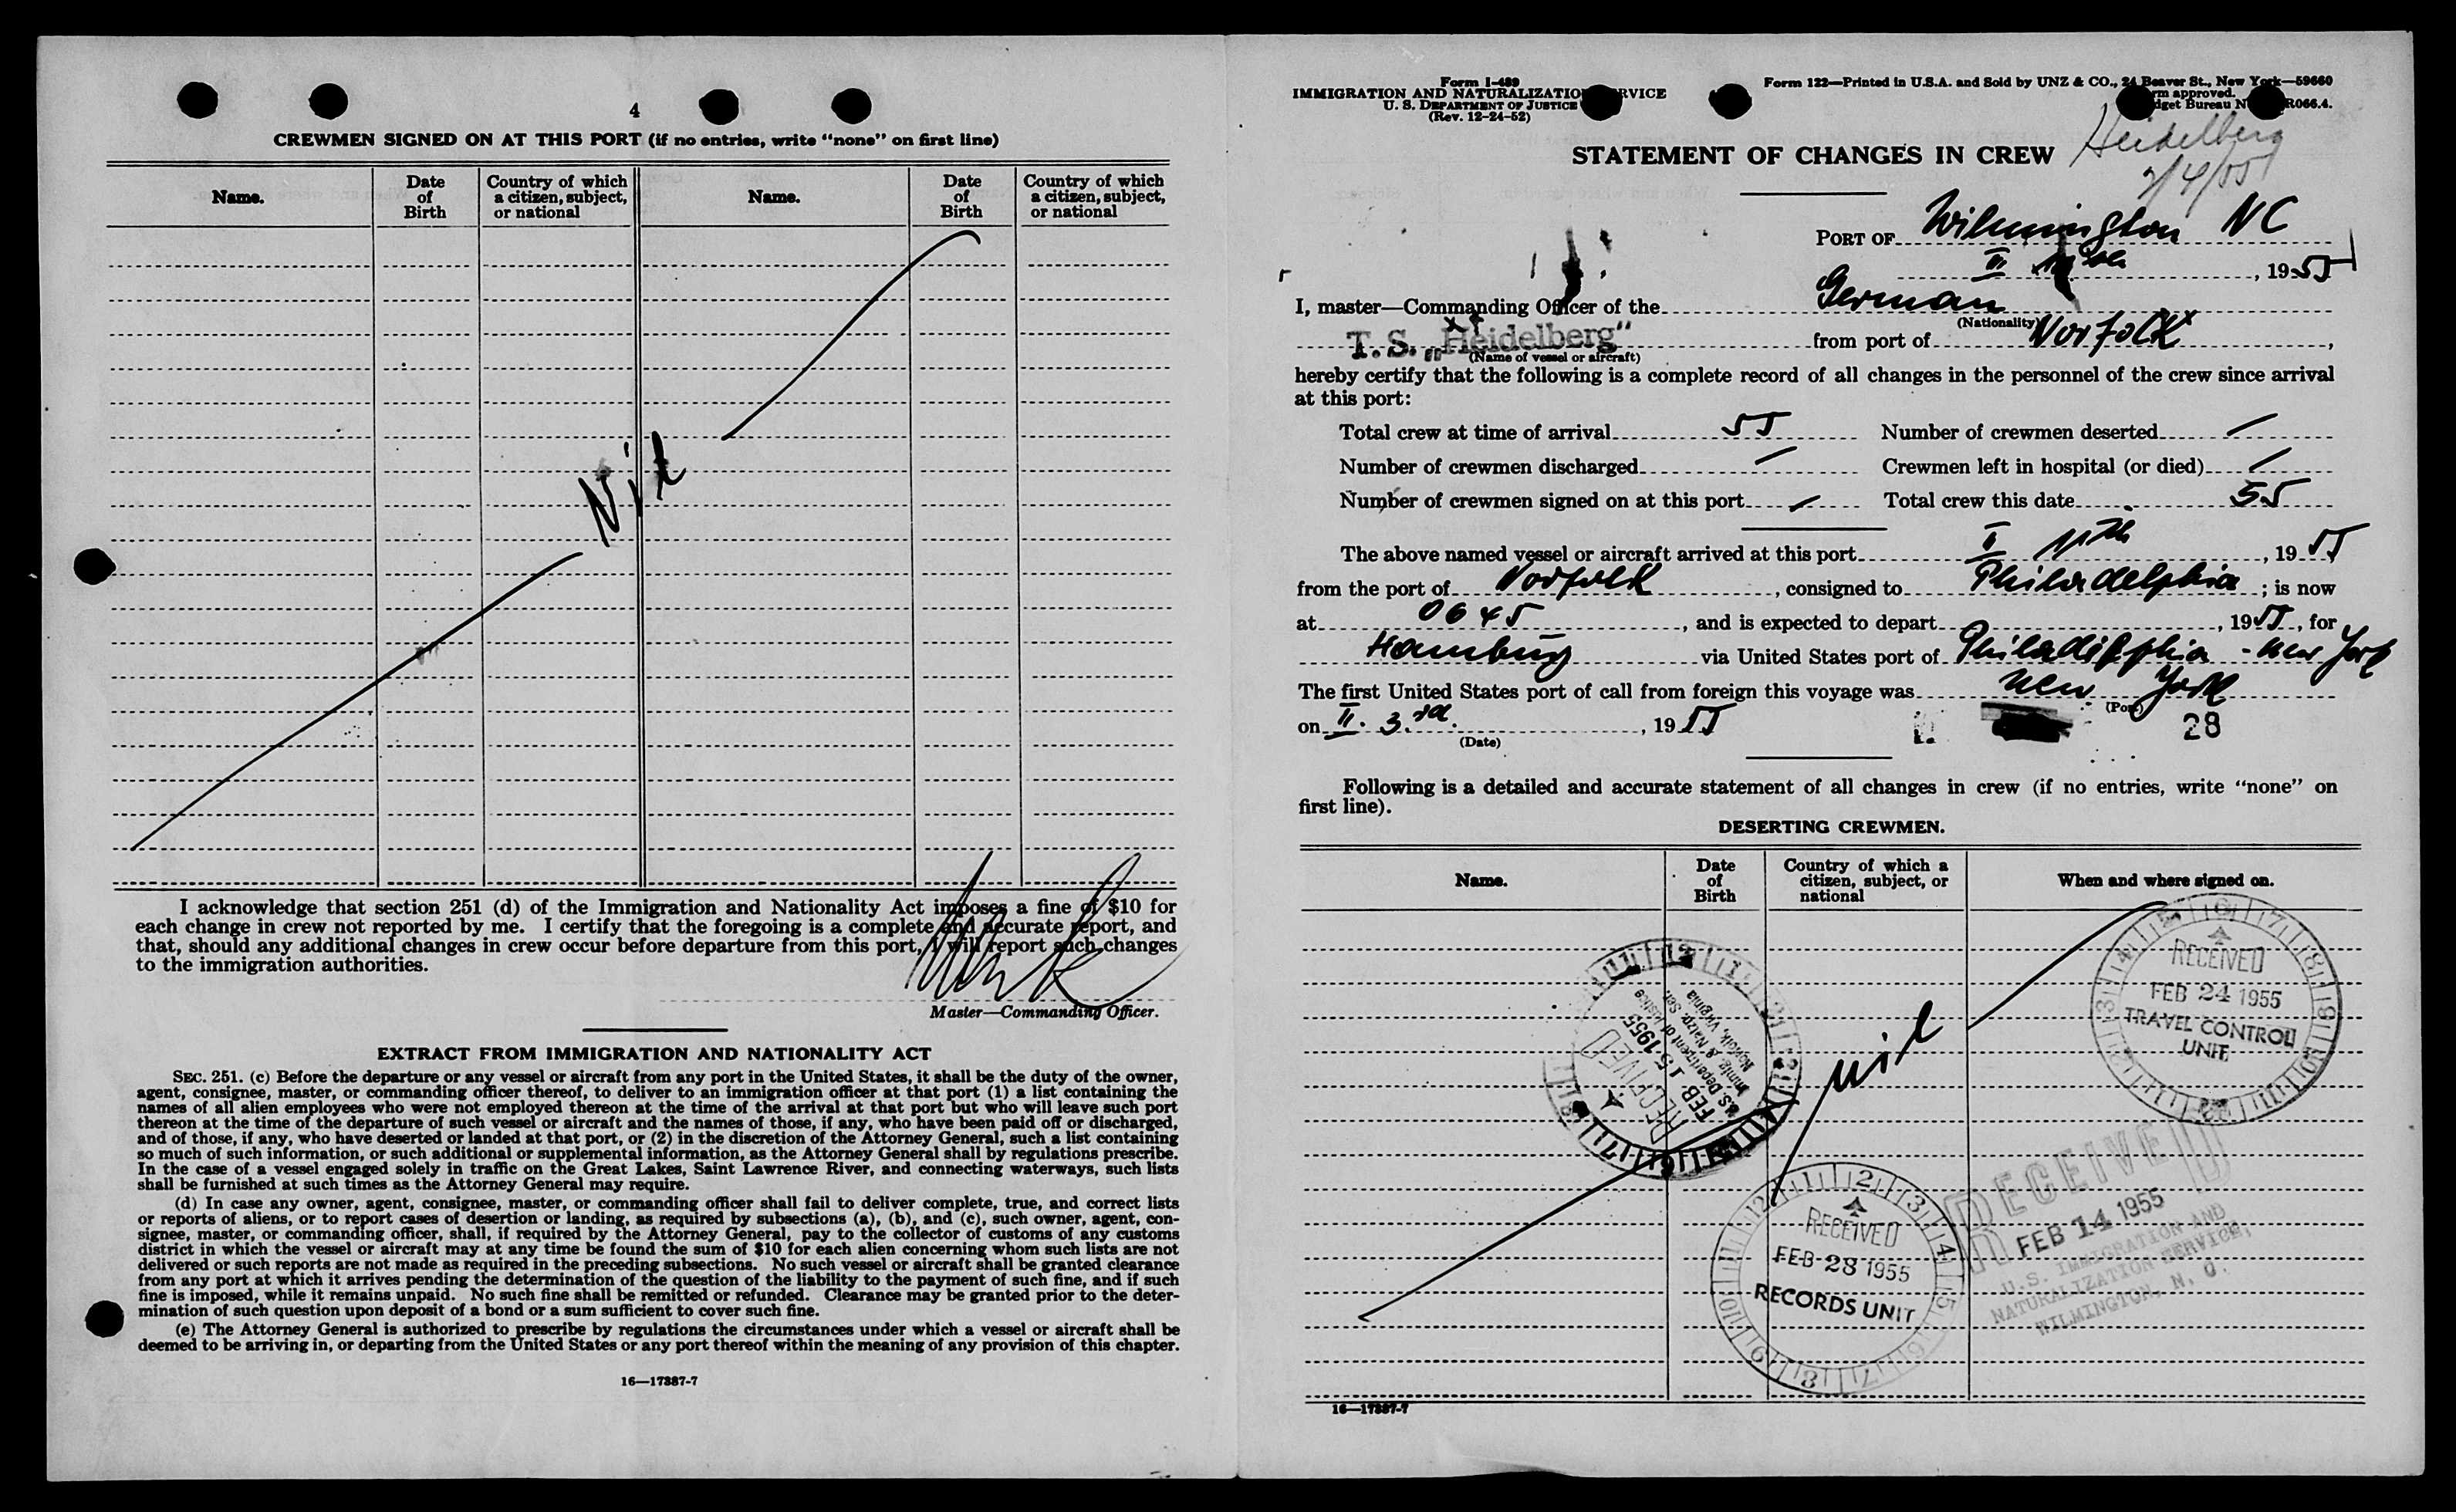 4
CREWMEN SIGNED ON AT THIS PORT (if no entries, write "none" on first line)
Name. Date of Birth Country of which a citizen, subject, or national Name. Date of Birth Country of which a citizen, subject, or national
Nil
I acknowledge that section 251 (d) of the Immigration and Nationality Act imposes a fine of $10 for
each change in crew not reported by me. I certify that the foregoing is a complete and accurate report, and
that, should any additional changes in crew occur before departure from this port, I will report such changes
to the immigration authorities.
Master—Commanding Officer.
EXTRACT FROM IMMIGRATION AND NATIONALITY ACT
SEC. 251. (c) Before the departure or any vessel or aircraft from any port in the United States, it shall be the duty of the owner,
agent, consignee, master, or commanding officer thereof, to deliver to an immigration officer at that port (1) a list containing the
names of all alien employees who were not employed thereon at the time of the arrival at that port but who will leave such port
thereon at the time of the departure of such vessel or aircraft and the names of those, if any, who have been paid off or discharged,
and of those, if any, who have deserted or landed at that port, or (2) in the discretion of the Attorney General, such a list containing
so much of such information, or such additional or supplemental information, as the Attorney General shall by regulations prescribe.
In the case of a vessel engaged solely in traffic on the Great Lakes, Saint Lawrence River, and connecting waterways, such lists
shall be furnished at such times as the Attorney General may require.
(d) In case any owner, agent, consignee, master, or commanding officer shall fail to deliver complete, true, and correct lists
or reports of aliens, or to report cases of desertion or landing, as required by subsections (a), (b), and (c), such owner, agent, con-
signee, master, or commanding officer, shall, if required by the Attorney General, pay to the collector of customs of any customs
district in which the vessel or aircraft may at any time be found the sum of $10 for each alien concerning whom such lists are not
delivered or such reports are not made as required in the preceding subsections. No such vessel or aircraft shall be granted clearance
from any port at which it arrives pending the determination of the question of the liability to the payment of such fine, and if such
fine is imposed, while it remains unpaid. No such fine shall be remitted or refunded. Clearance may be granted prior to the deter-
mination of such question upon deposit of a bond or a sum sufficient to cover such fine.
(e) The Attorney General is authorized to prescribe by regulations the circumstances under which a vessel or aircraft shall be
deemed to be arriving in, or departing from the United States or any port thereof within the meaning of any provision of this chapter.
16—17387-7
Form I-489
IMMIGRATION AND NATURALIZATION SERVICE
U. S. DEPARTMENT OF JUSTICE
(Rev. 12-24-52)
Form 122—Printed in U.S.A. and Sold by UNZ & CO., 24 Beaver St., New York—59660
approved.
Bureau R066.4.
Heidelberg
2/4/55
STATEMENT OF CHANGES IN CREW
PORT OF Wilmington NC
II , 1955
I, master—Commanding Officer of the German
(Nationality)
T.S. „Heidelberg" from port of Norfolk ,
(Name of vessel or aircraft)
hereby certify that the following is a complete record of all changes in the personnel of the crew since arrival
at this port:
Total crew at time of arrival 55 Number of crewmen deserted /
Number of crewmen discharged / Crewmen left in hospital (or died) /
Number of crewmen signed on at this port / Total crew this date 55
The above named vessel or aircraft arrived at this port II 11th , 1955
from the port of Norfolk , consigned to Philadelphia ; is now
at 0645 , and is expected to depart , 1955 , for
Hamburg via United States port of Philadelphia - New York
The first United States port of call from foreign this voyage was New York
(Port)
on II. 3rd. , 1955 28
(Date)
Following is a detailed and accurate statement of all changes in crew (if no entries, write "none" on
first line).
DESERTING CREWMEN.
Name. Date of Birth Country of which a citizen, subject, or national When and where signed on.
nil
RECEIVED
FEB 24 1955
TRAVEL CONTROL
UNIT
RECEIVED
FEB 15 1955
U.S. Department of Justice
Immig. & Natzn. Ser.
Norfolk, Virginia
RECEIVED
FEB 28 1955
RECORDS UNIT
RECEIVED
FEB 14 1955
U.S. IMMIGRATION AND
NATURALIZATION SERVICE,
WILMINGTON, N. C.
16—17387-7